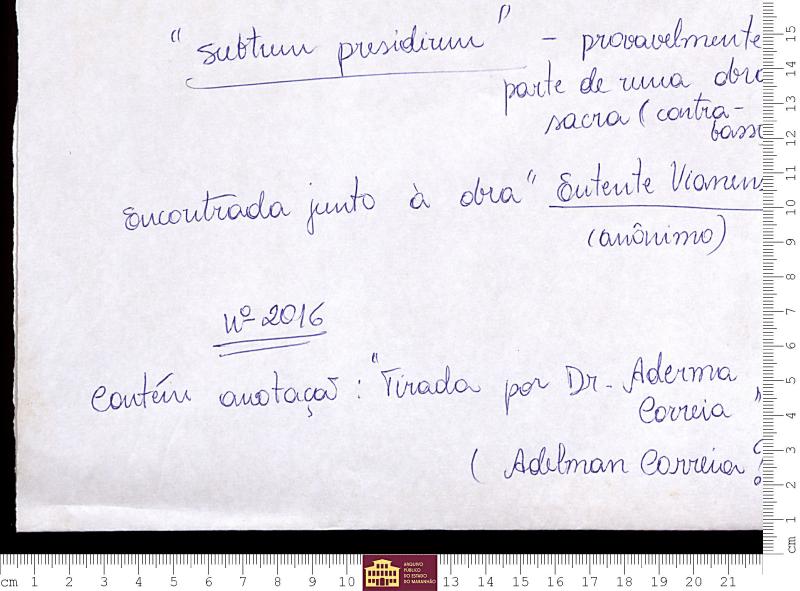 "Subtrum presidirum" - provavelmente
parte de uma obra
sacra (contra-
basso
Encontrada junto à obra "Entente Vianen
(anônimo)
Nº 2016
Contém anotaçaõ: "Tirada por Dr. Aderma
Correia"
(Adelman Correia?
ARQUIVO
PÚBLICO
DO ESTADO
DO MARANHÃO
cm 1 2 3 4 5 6 7 8 9 10 13 14 15 16 17 18 19 20 21
15
14
13
12
11
10
9
8
7
6
5
4
3
2
1
cm